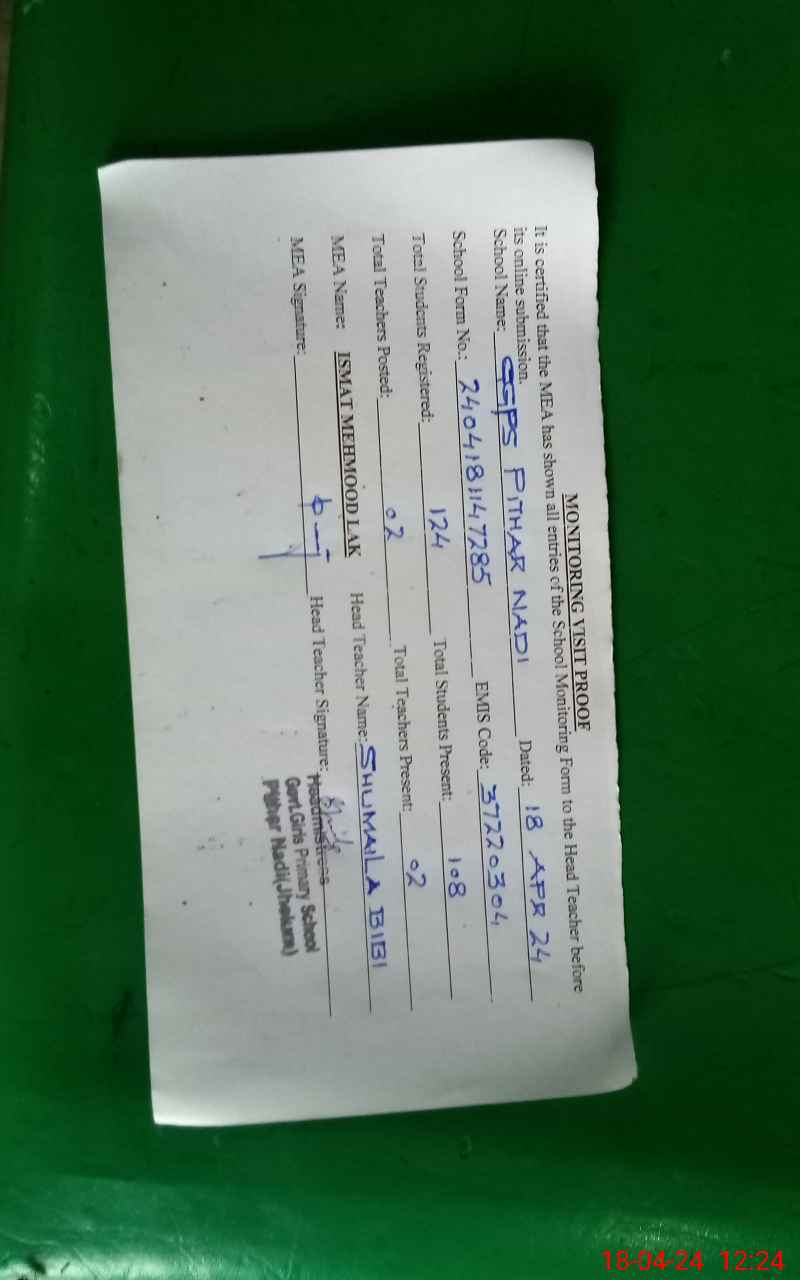 MONITORING VISIT PROOF
It is certified that the MEA has shown all entries of the School Monitoring Form to the Head Teacher before
its online submission.
School Name: GGPS PITHAR NADI Dated: 18 APR 24
School Form No.: 2404181147285 EMIS Code: 37220304
Total Students Registered: 124 Total Students Present: 108
Total Teachers Posted: 02 Total Teachers Present: 02
MEA Name: ISMAT MEHMOOD LAK Head Teacher Name: SHUMAILA BIBI
MEA Signature: Head Teacher Signature:
Headmistress
Govt.Girls Primary School
Pither Nadi(Jhelum)
18-04-24 12:24